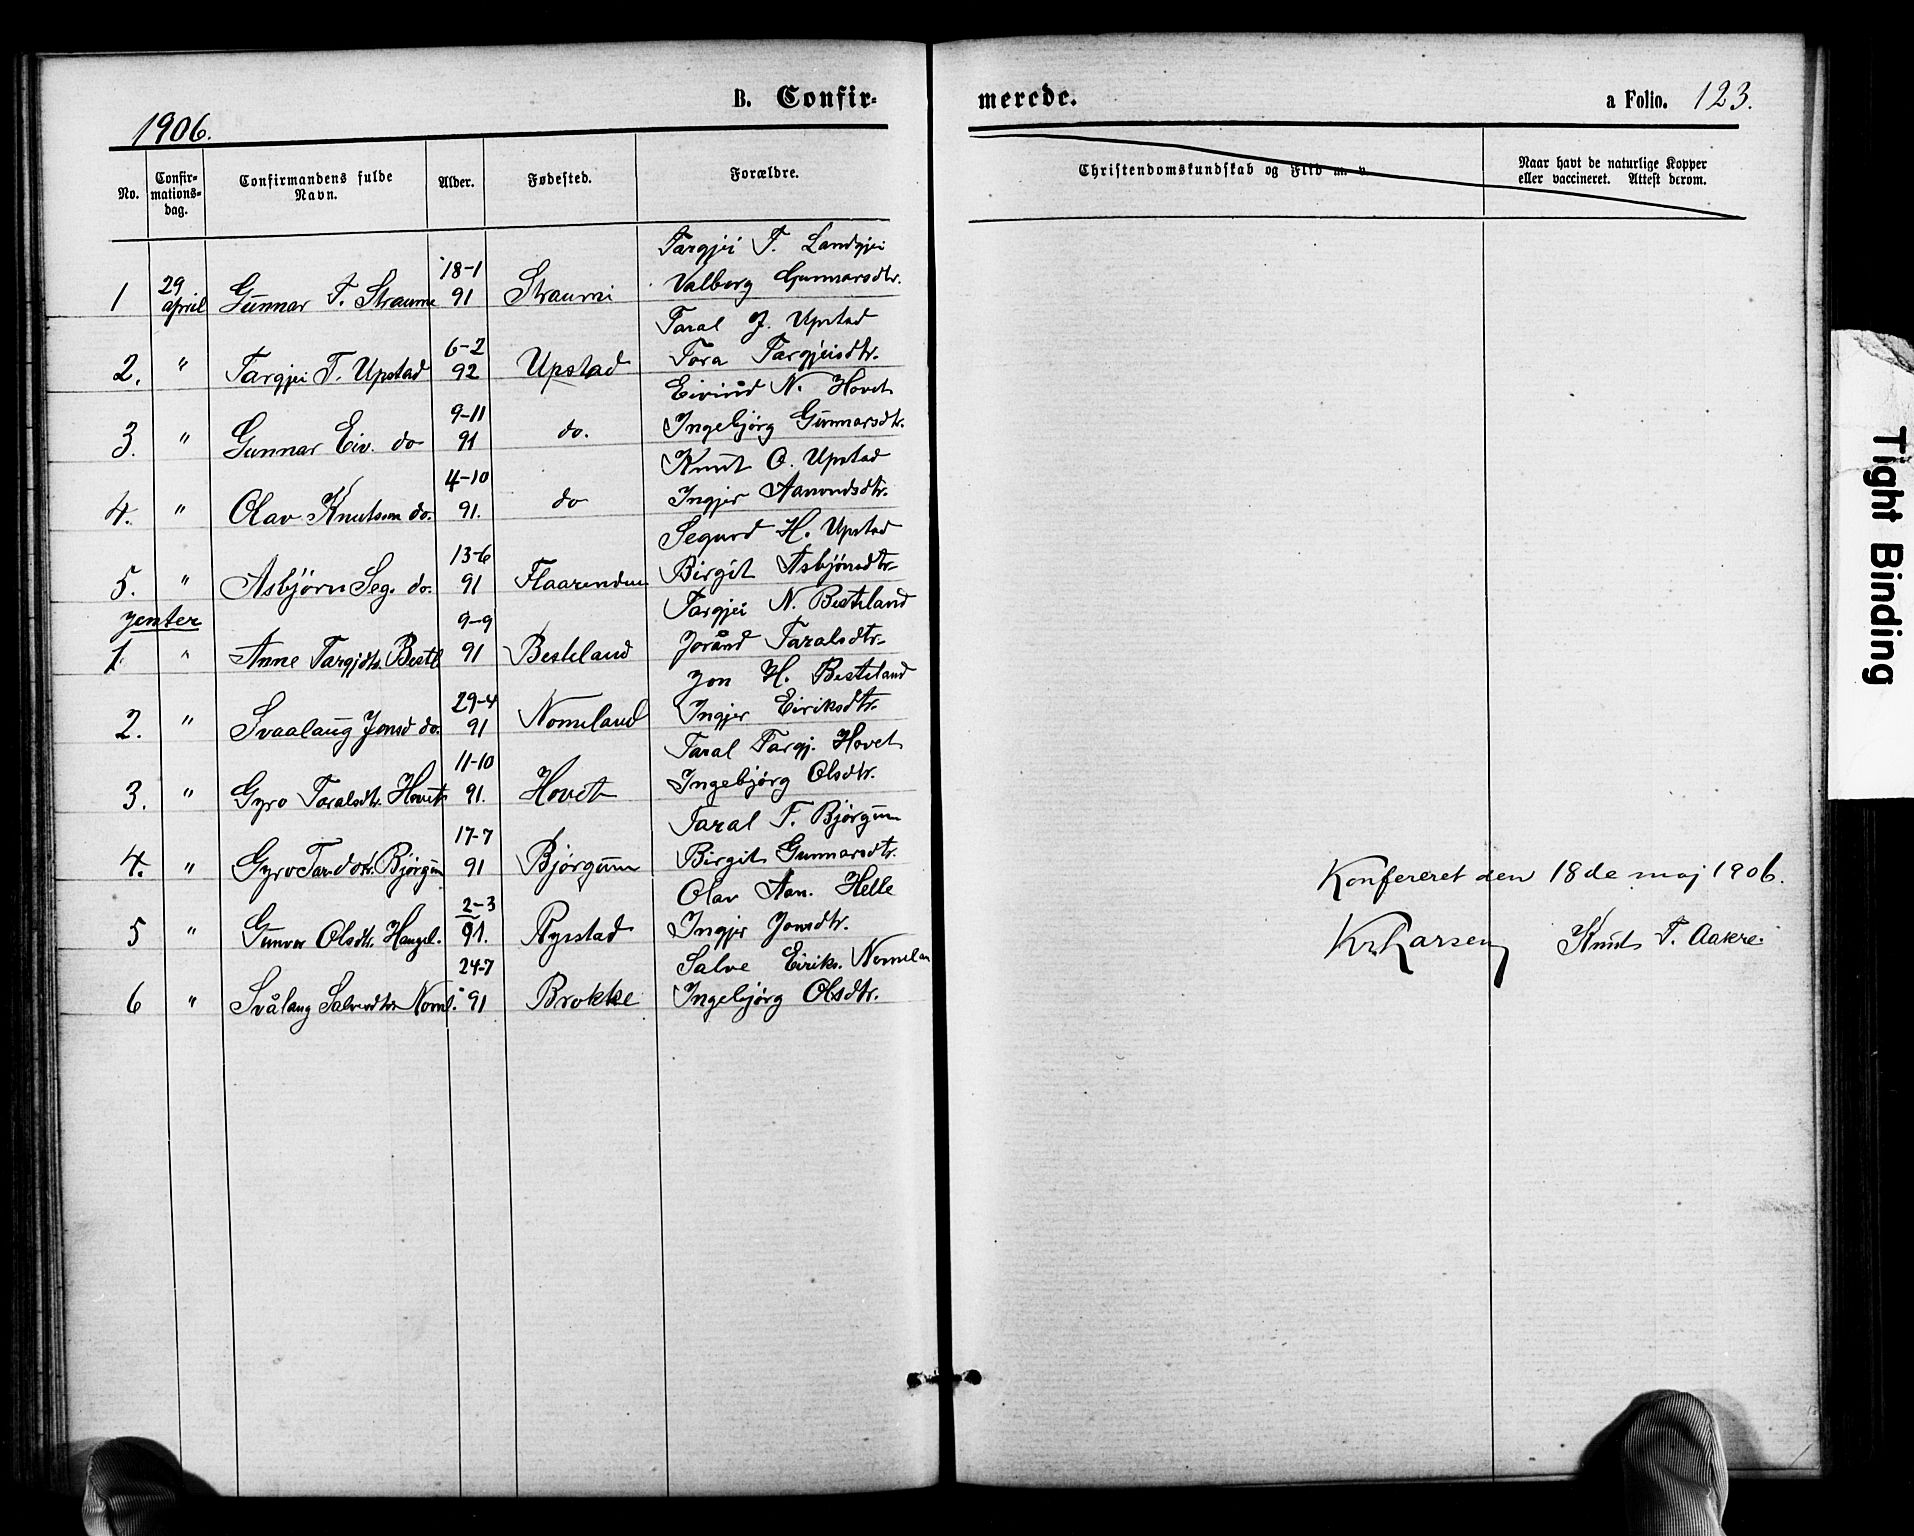 B. Confir-
merede.
a Folio. 123.
1906.
No.
Confir-
mations-
dag.
Confirmandens fulde
Navn.
Alder.
Fødested.
Forældre.
Christendomskundskab og Flid m. v.
Naar havt de naturlige Kopper
eller vaccineret. Attest derom.
Targjei T. Landgjei
1 29 april Gunnar T. Straume 18-1 91 Straumi Valborg Gunnarsdtr.
Taral J. Upstad
2. " Targjei T. Upstad 6-2 92 Upstad Tora Targjeisdtr.
Eivind N. Hovet
3. " Gunnar Eiv. do 9-11 91 do. Ingebjørg Gunnarsdtr.
Knut O. Upstad
4. " Olav Knutson do. 4-10 91. do Ingjer Aanundsdtr.
Segurd H. Upstad
5. " Asbjörn Seg. do. 13-6 91 Flaarenden Birgit Asbjönsdtr.
Jenter
Targjei N. Besteland
1. " Anne Targjdtr. Bestl 9-9 91 Besteland Joránd Taralsdtr.
Jon H. Besteland
2. " Svaalaug Jonsd do. 29-4 91 Nomeland Ingjer Eiriksdtr.
Taral Targj. Hovet
3. " Gyro Taralsdtr. Hovet 11-10 91. Hovet Ingebjørg Olsdtr.
Taral T. Bjørgum
4. " Gyro Bjørgum 17-7 91 Bjørgum Birgit Gunnarsdtr.
Olav Aan. Helle
5 " Gunvor Olsdtr. 2-3 91. Rysstad Ingjer Jonsdtr.
Salve Eiriks. Nomelan
6 " Svålaug Noml. 24-7 91 Brokke Ingebjørg Olsdtr.
Konfereret den 18de maj 1906.
Kr. Larsen Knut T. Aakre.
Tight Binding